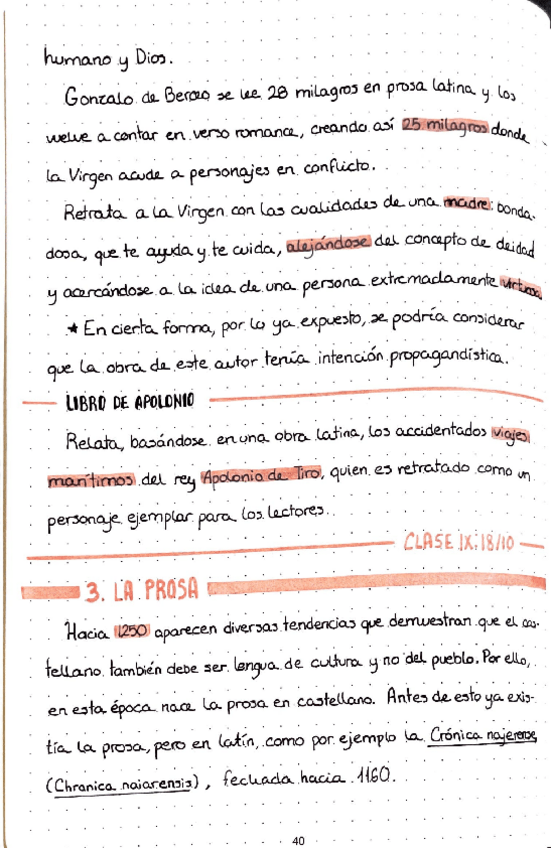 humano y Dios.
Gonzalo de Berceo se lee 28 milagros en prosa latina y los
vuelve a contar en verso romance, creando así 25 milagros donde
la Virgen acude a personajes en conflicto.
Retrata a la Virgen con las cualidades de una madre: bonda-
dosa, que te ayuda y te cuida, alejándose del concepto de deidad
y acercándose a la idea de una persona extremadamente virtuosa
* En cierta forma, por lo ya expuesto, se podría considerar
que la obra de este autor tenía intención propagandística.
LIBRO DE APOLONIO
Relata, basándose en una obra latina, los accidentados viajes
marítimos del rey Apolonio de Tiro, quien es retratado como un
personaje ejemplar para los lectores.
CLASE IX: 18/10
3. LA PROSA
Hacia 1250 aparecen diversas tendencias que demuestran que el cas-
tellano también debe ser lengua de cultura y no del pueblo. Por ello,
en esta época nace la prosa en castellano. Antes de esto ya exis-
tía la prosa, pero en latín, como por ejemplo la Crónica najerense
(Chronica naiarensis), fechada hacia 1160.
40